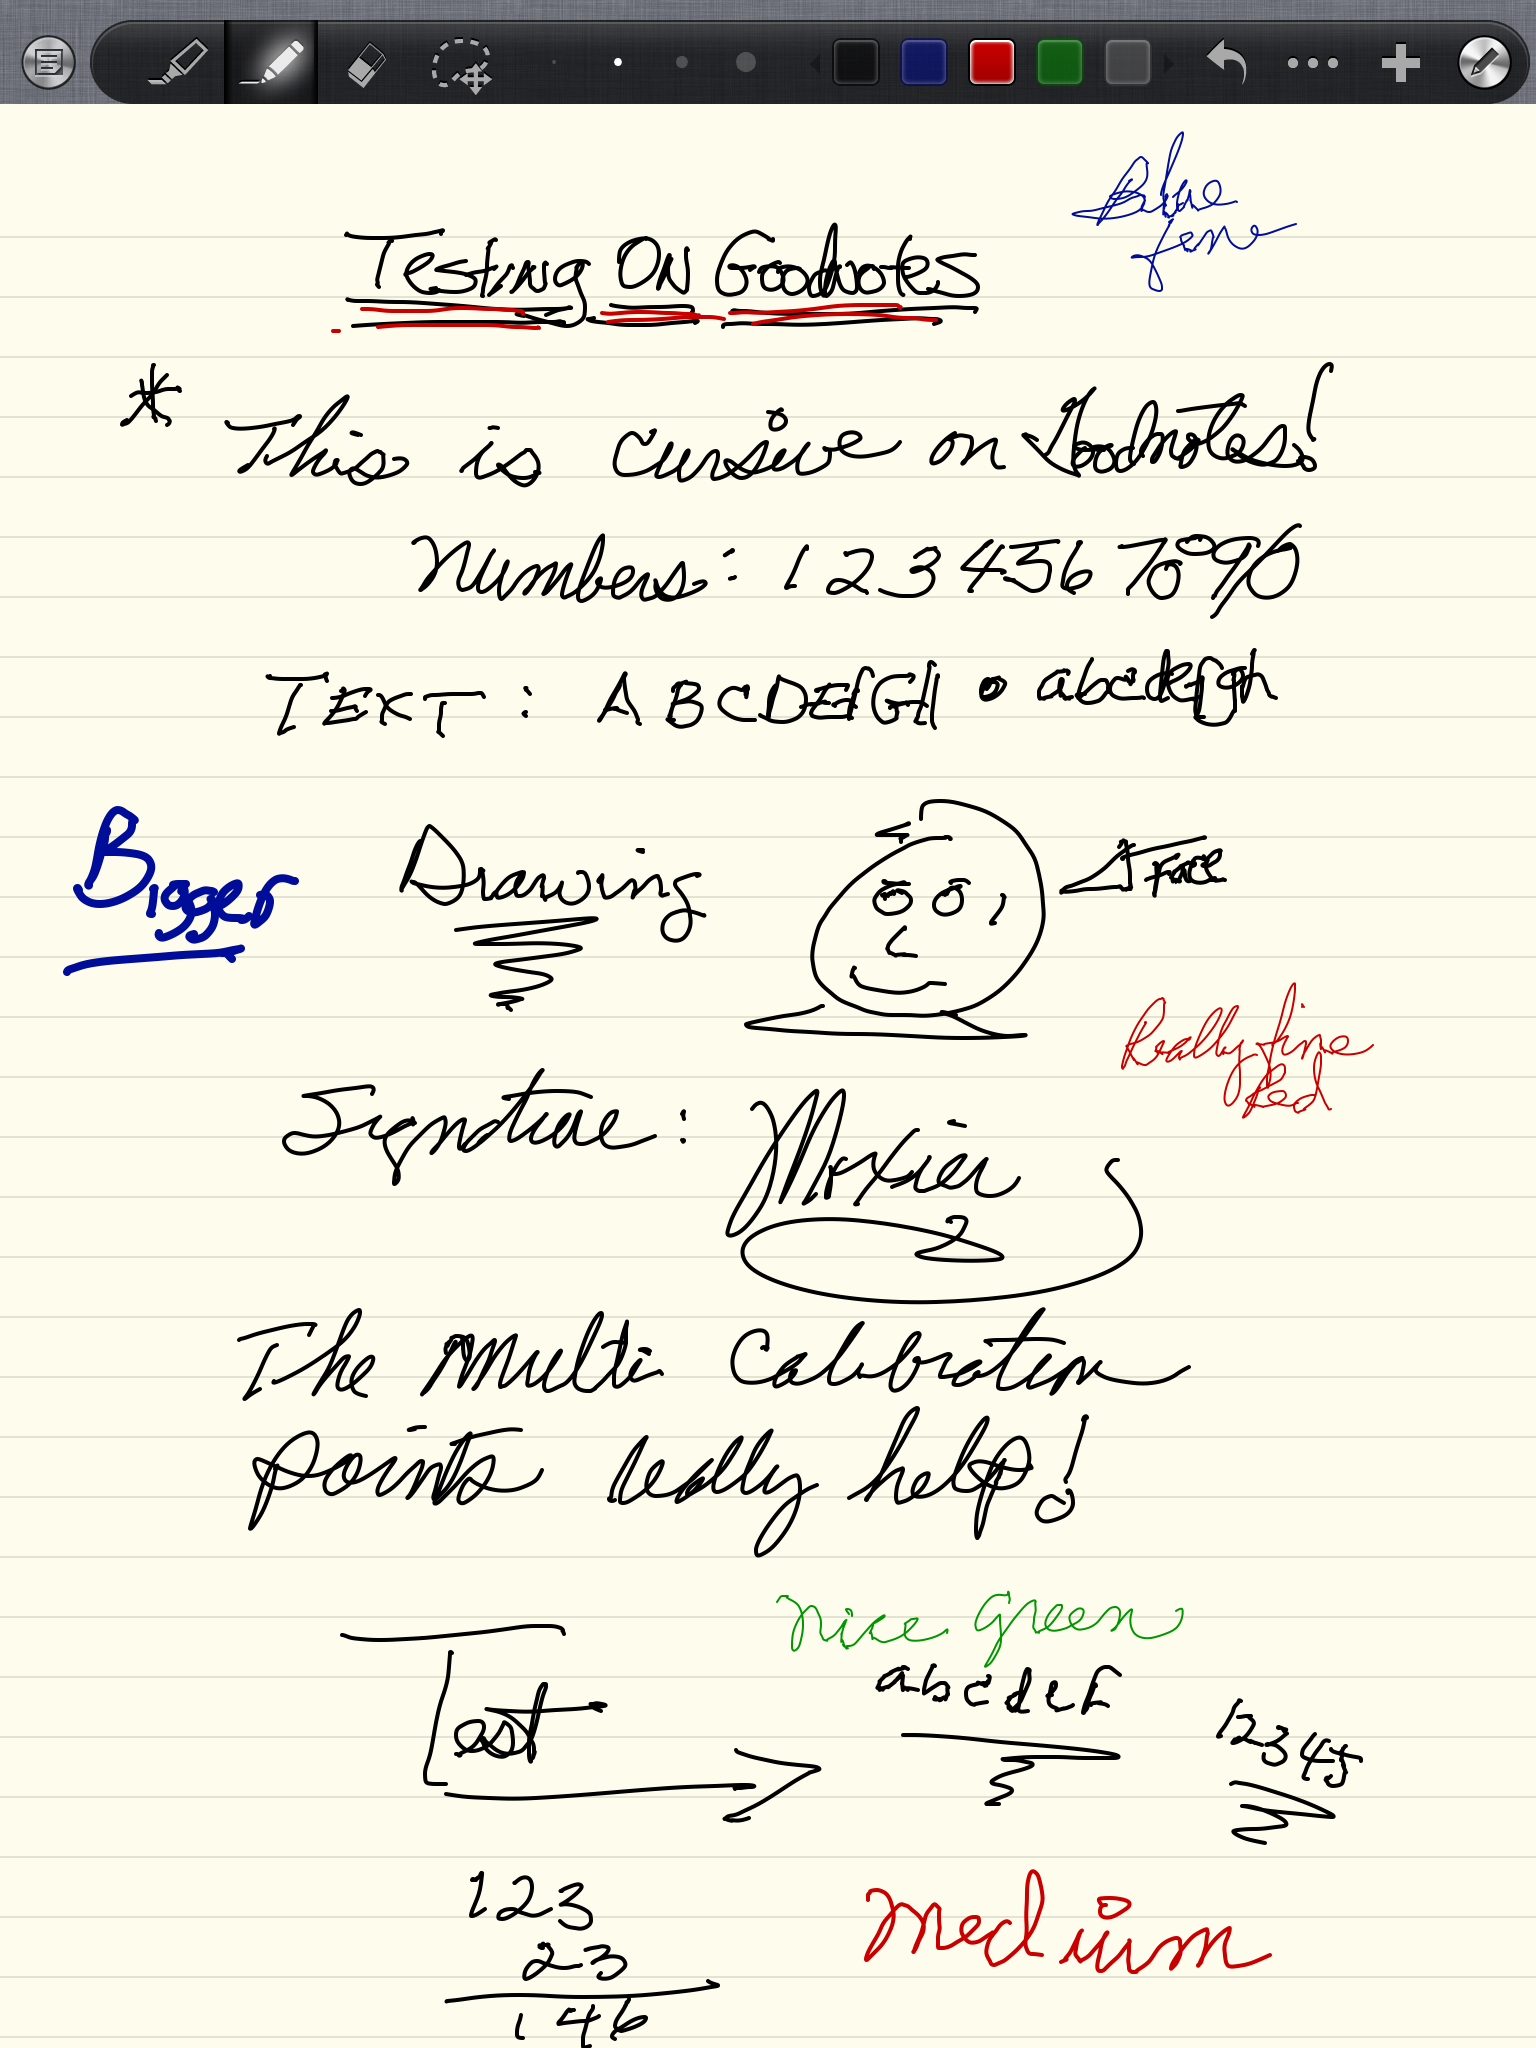 Blue
fine
Testing ON Goodnotes
* This is cursive on Goodnotes!
Numbers: 1234567890
TEXT: ABCDEFGH • abcdefgh
Bigger
Drawing
Face
Really fine
Red
Signature:
The Multi Calibration
points really help!
nice green
Test
abcdef
12345
123
23
146
Medium